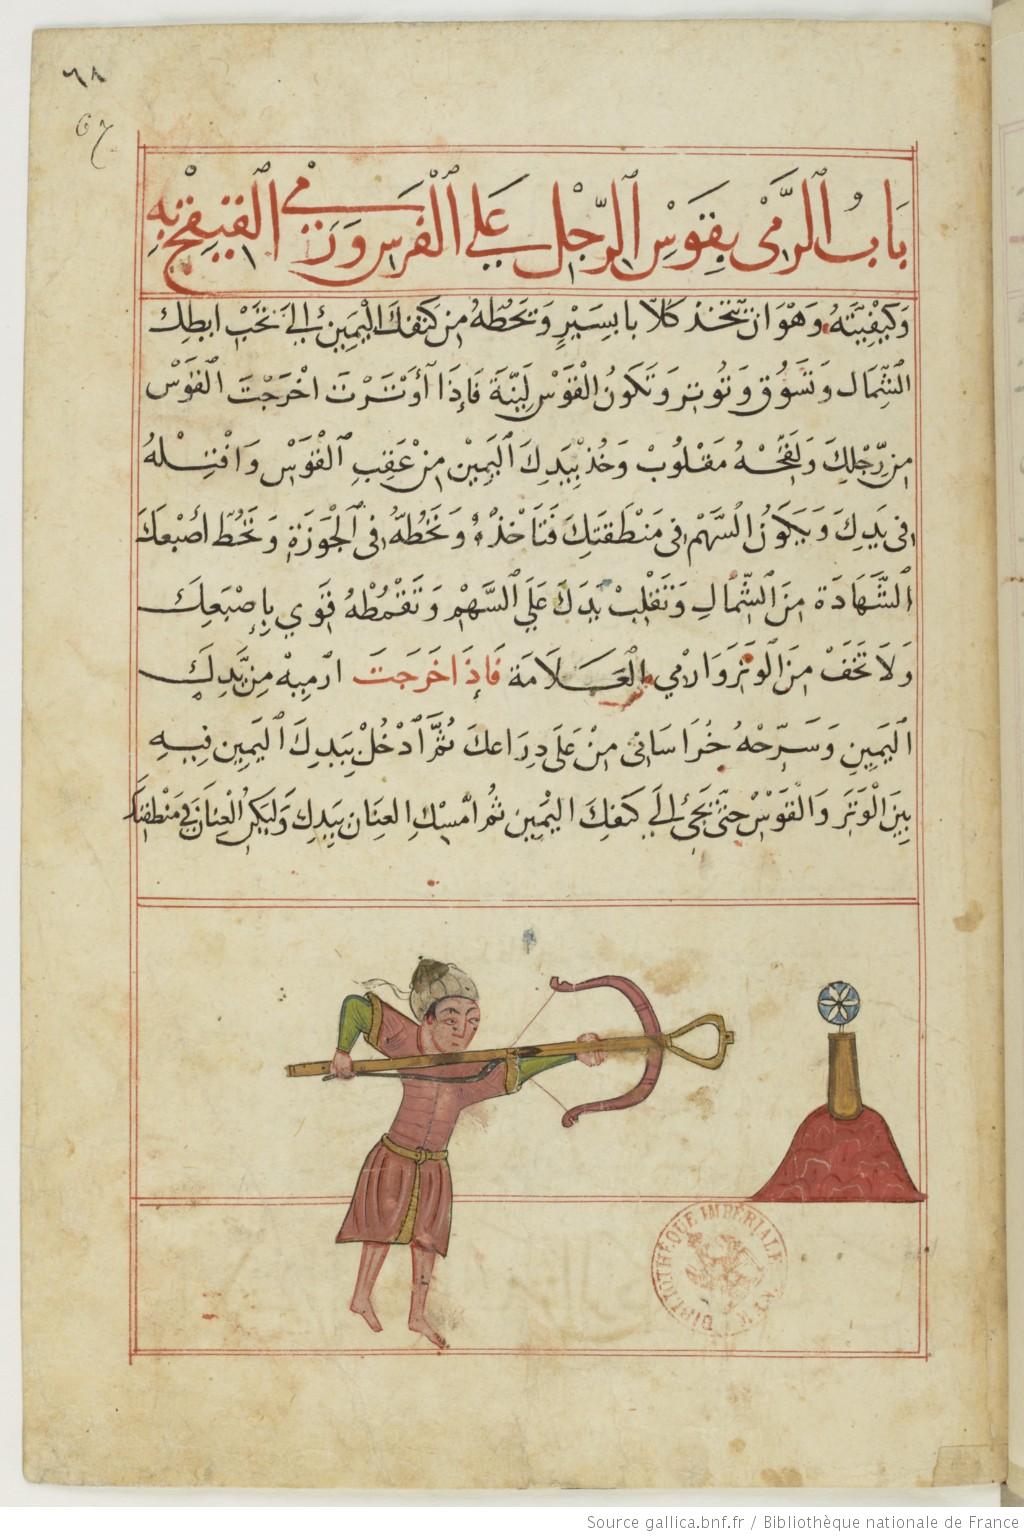 ٦٨
بَابُ الرَّمْي بِقَوْسِ الرِّجْلِ عَلَي الْفَرَسِ وَرَمْي القيقج بِهِ
وَكَيْفِيَّتَهُ وَهْوَ ان تتّخذ كلّابا بِسَيْرٍ وَتَحُطّهُ مِن كَتفك الْيَمِين الَى تَحْت ابطِك
الشِّمَال وَتَسُوُق وَتُوتِر وَتَكُونُ الْقَوْس لَيِّنَة فَاِذَا أوْتَرْتَ اخْرَجْتَ الْقَوْس
مِن رِّجْلِكَ وَلَفتّحْهُ مَقْلُوبْ وَخُذْ بِيَدِكَ الْيَمِيْن مِن عَقِبِ الْقَوْسِ وَافْتِلْهُ
فِى يَدِكَ وَيَكُونُ السَّهْم فِى مَنْطَقَتِكَ فَتَاَخْذهُ وَتَحُطّهُ فِى الْجَوْزَةِ وَتَحُط اَصْبعَكَ
الشَّهَادَة مِنَ الشِّمَالِ وَتَقْلِبْ يَدَكَ عَلَي السَّهْم وَتَقمُطْهُ قَوِي بِإصْبَعِكَ
وَلَا تَخَفْ مِنَ الوَتَر وَارْمِي الْعَلَامَة فَاِذَا خَرَجتَ ارْمِيهْ مِن يَّدِكَ
الْيَمِيْنِ وَسَرِّحْهُ خُرَاسَانى مِنْ عَلَى دِرَاعكَ ثُمَّ ادْخُلْ بِيَدِكَ الْيَمِين فِيهِ
بيَن الْوَتَر وَالْقَوْسْ حَتّى تَجَئ اِلَى كَتفكَ الْيَمِين ثُم امْسك الْعِنَان بِيَدِكَ وَليَكن الْعِنَان فى مَنْطقتك
BIBLIOTHÈQUE IMPÉRIALE
Source gallica.bnf.fr / Bibliothèque nationale de France